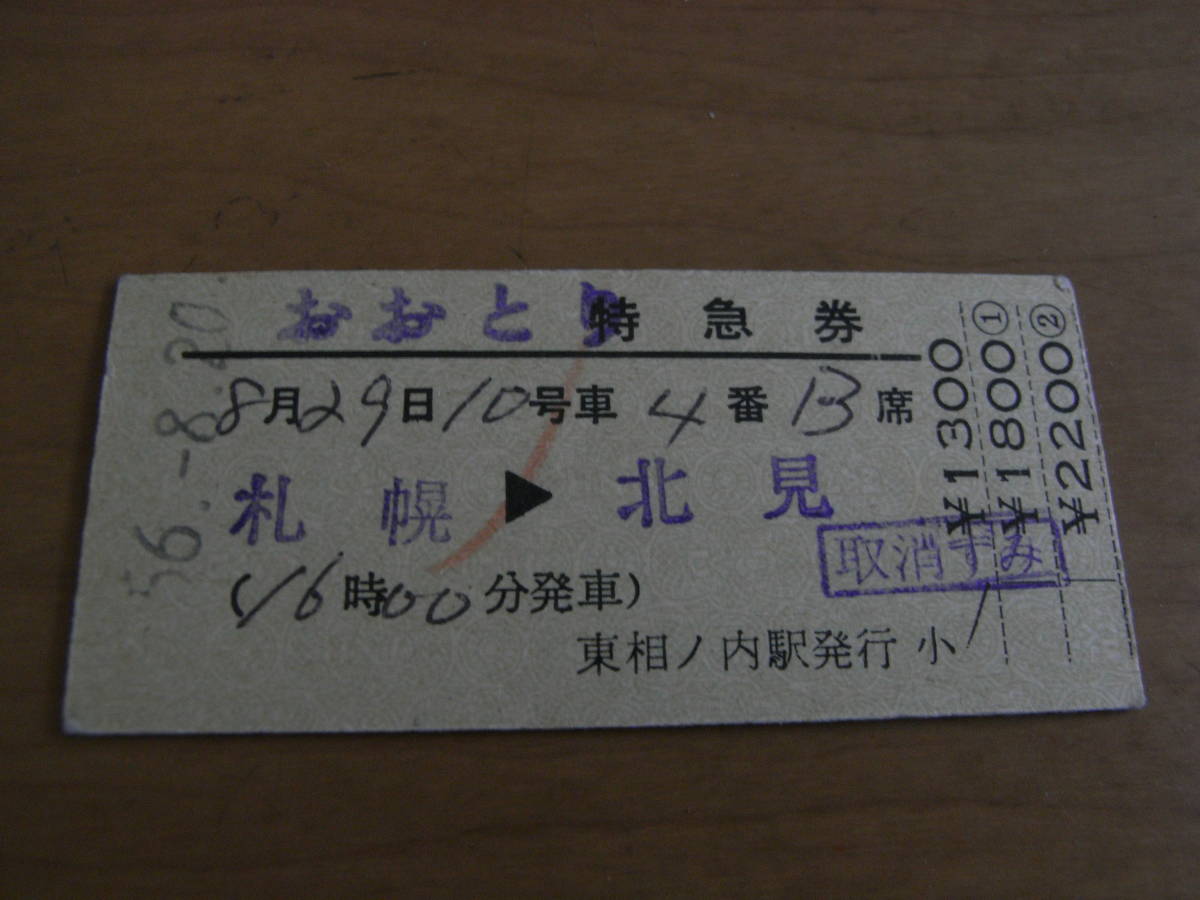 おおとり特急券
8月29日10号車4番13席
札幌▶北見
(16時00分発車)
東相ノ内駅発行 小
取消ずみ
¥1300
¥1800①
¥2200②
56.-8.20